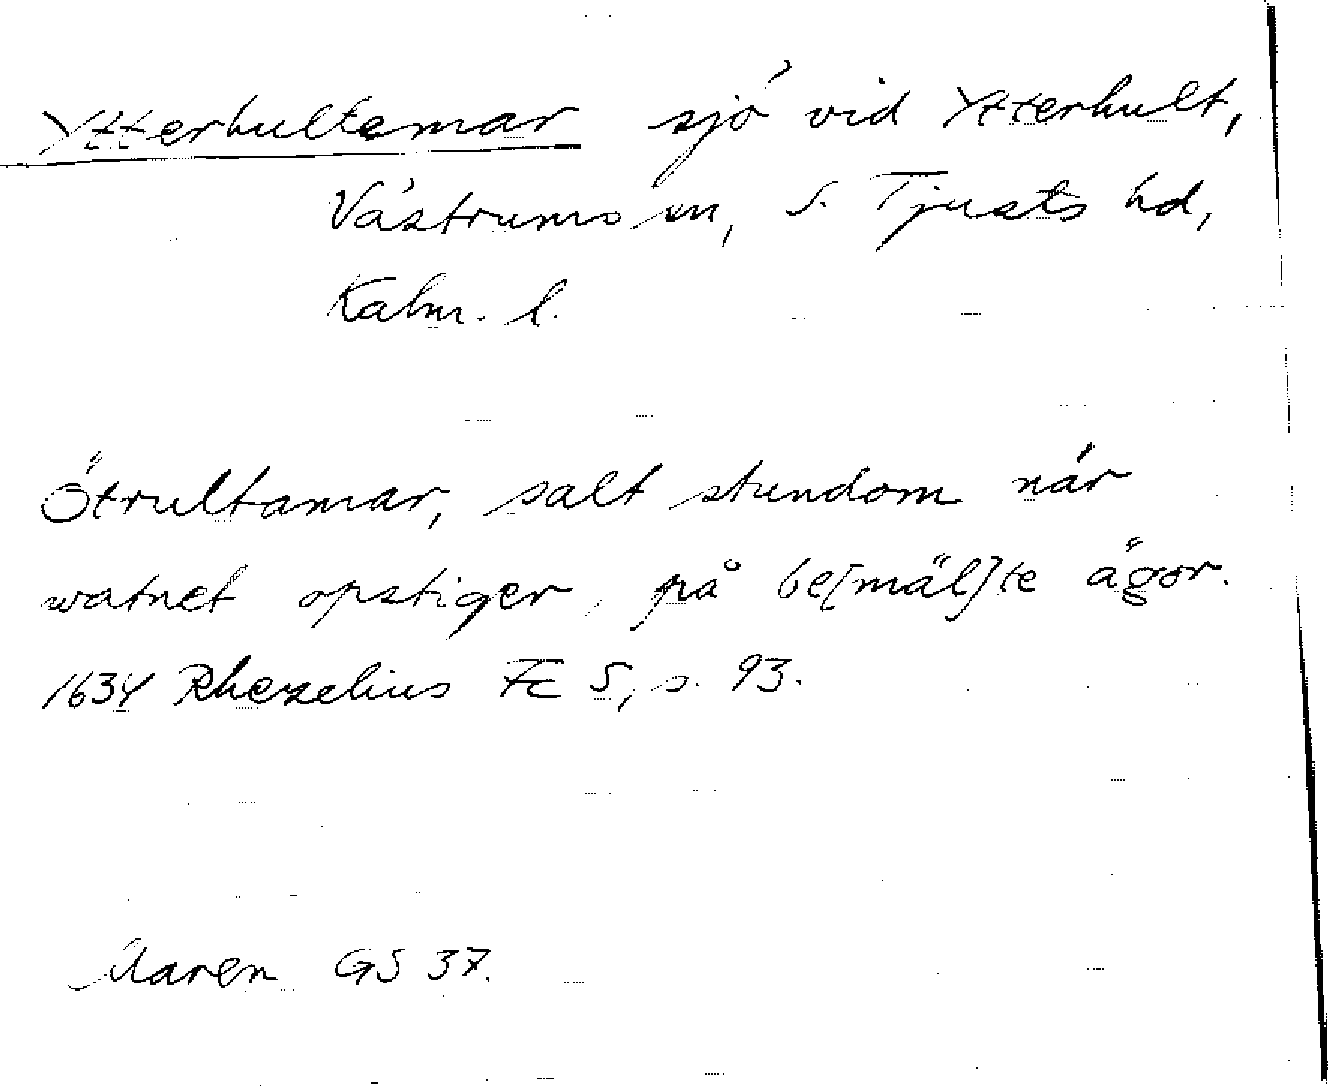 Ytterhultemar sjö vid Ytterhult,
Västrums sn, S. Tjusts hd,
Kalm. l.
Ötrultamar, salt stundom när
watnet opstiger, på be[mäl]te ägor.
1634 Rhezelius Fc 5, s. 93.
Maren GS 37.